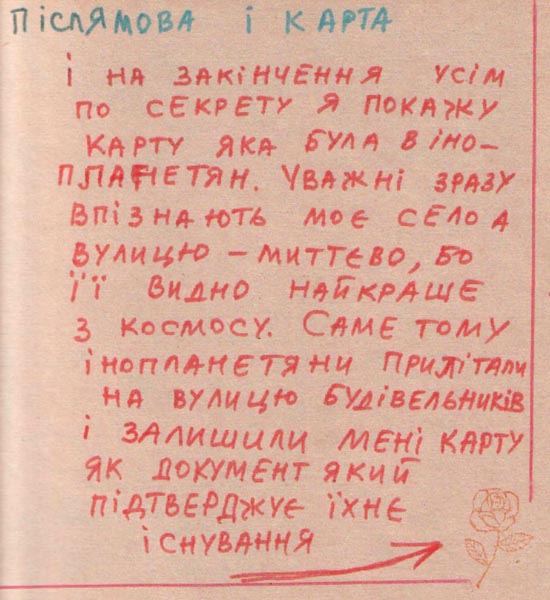 ПІСЛЯМОВА І КАРТА
І НА ЗАКІНЧЕННЯ УСІМ
ПО СЕКРЕТУ Я ПОКАЖУ
КАРТУ ЯКА БУЛА В ІНО-
ПЛАНЕТЯН. УВАЖНІ ЗРАЗУ
ВПІЗНАЮТЬ МОЄ СЕЛО А
ВУЛИЦЮ – МИТТЄВО, БО
ЇЇ ВИДНО НАЙКРАЩЕ
З КОСМОСУ. САМЕ ТОМУ
ІНОПЛАНЕТЯНИ ПРИЛІТАЛИ
НА ВУЛИЦЮ БУДІВЕЛЬНИКІВ
І ЗАЛИШИЛИ МЕНІ КАРТУ
ЯК ДОКУМЕНТ ЯКИЙ
ПІДТВЕРДЖУЄ ЇХНЄ
ІСНУВАННЯ